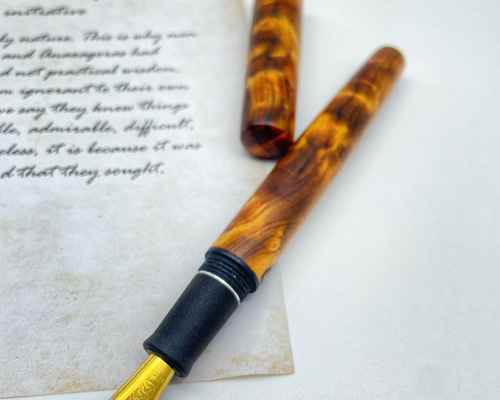 initiative
by nature. This is why men
and Anaxagoras had
d not practical wisdom,
m ignorant to their own
we say they knew things
le, admirable, difficult,
eless, it is because it was
d that they sought.